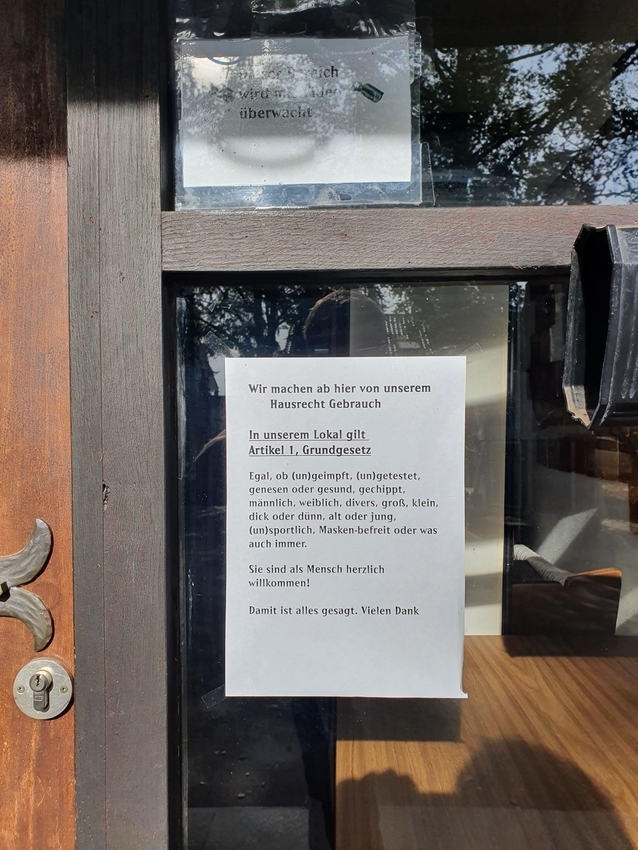 wird
überwacht
Wir machen ab hier von unserem
Hausrecht Gebrauch
In unserem Lokal gilt
Artikel 1, Grundgesetz
Egal, ob (un)geimpft, (un)getestet,
genesen oder gesund, gechippt,
männlich, weiblich, divers, groß, klein,
dick oder dünn, alt oder jung,
(un)sportlich, Masken-befreit oder was
auch immer.
Sie sind als Mensch herzlich
willkommen!
Damit ist alles gesagt. Vielen Dank